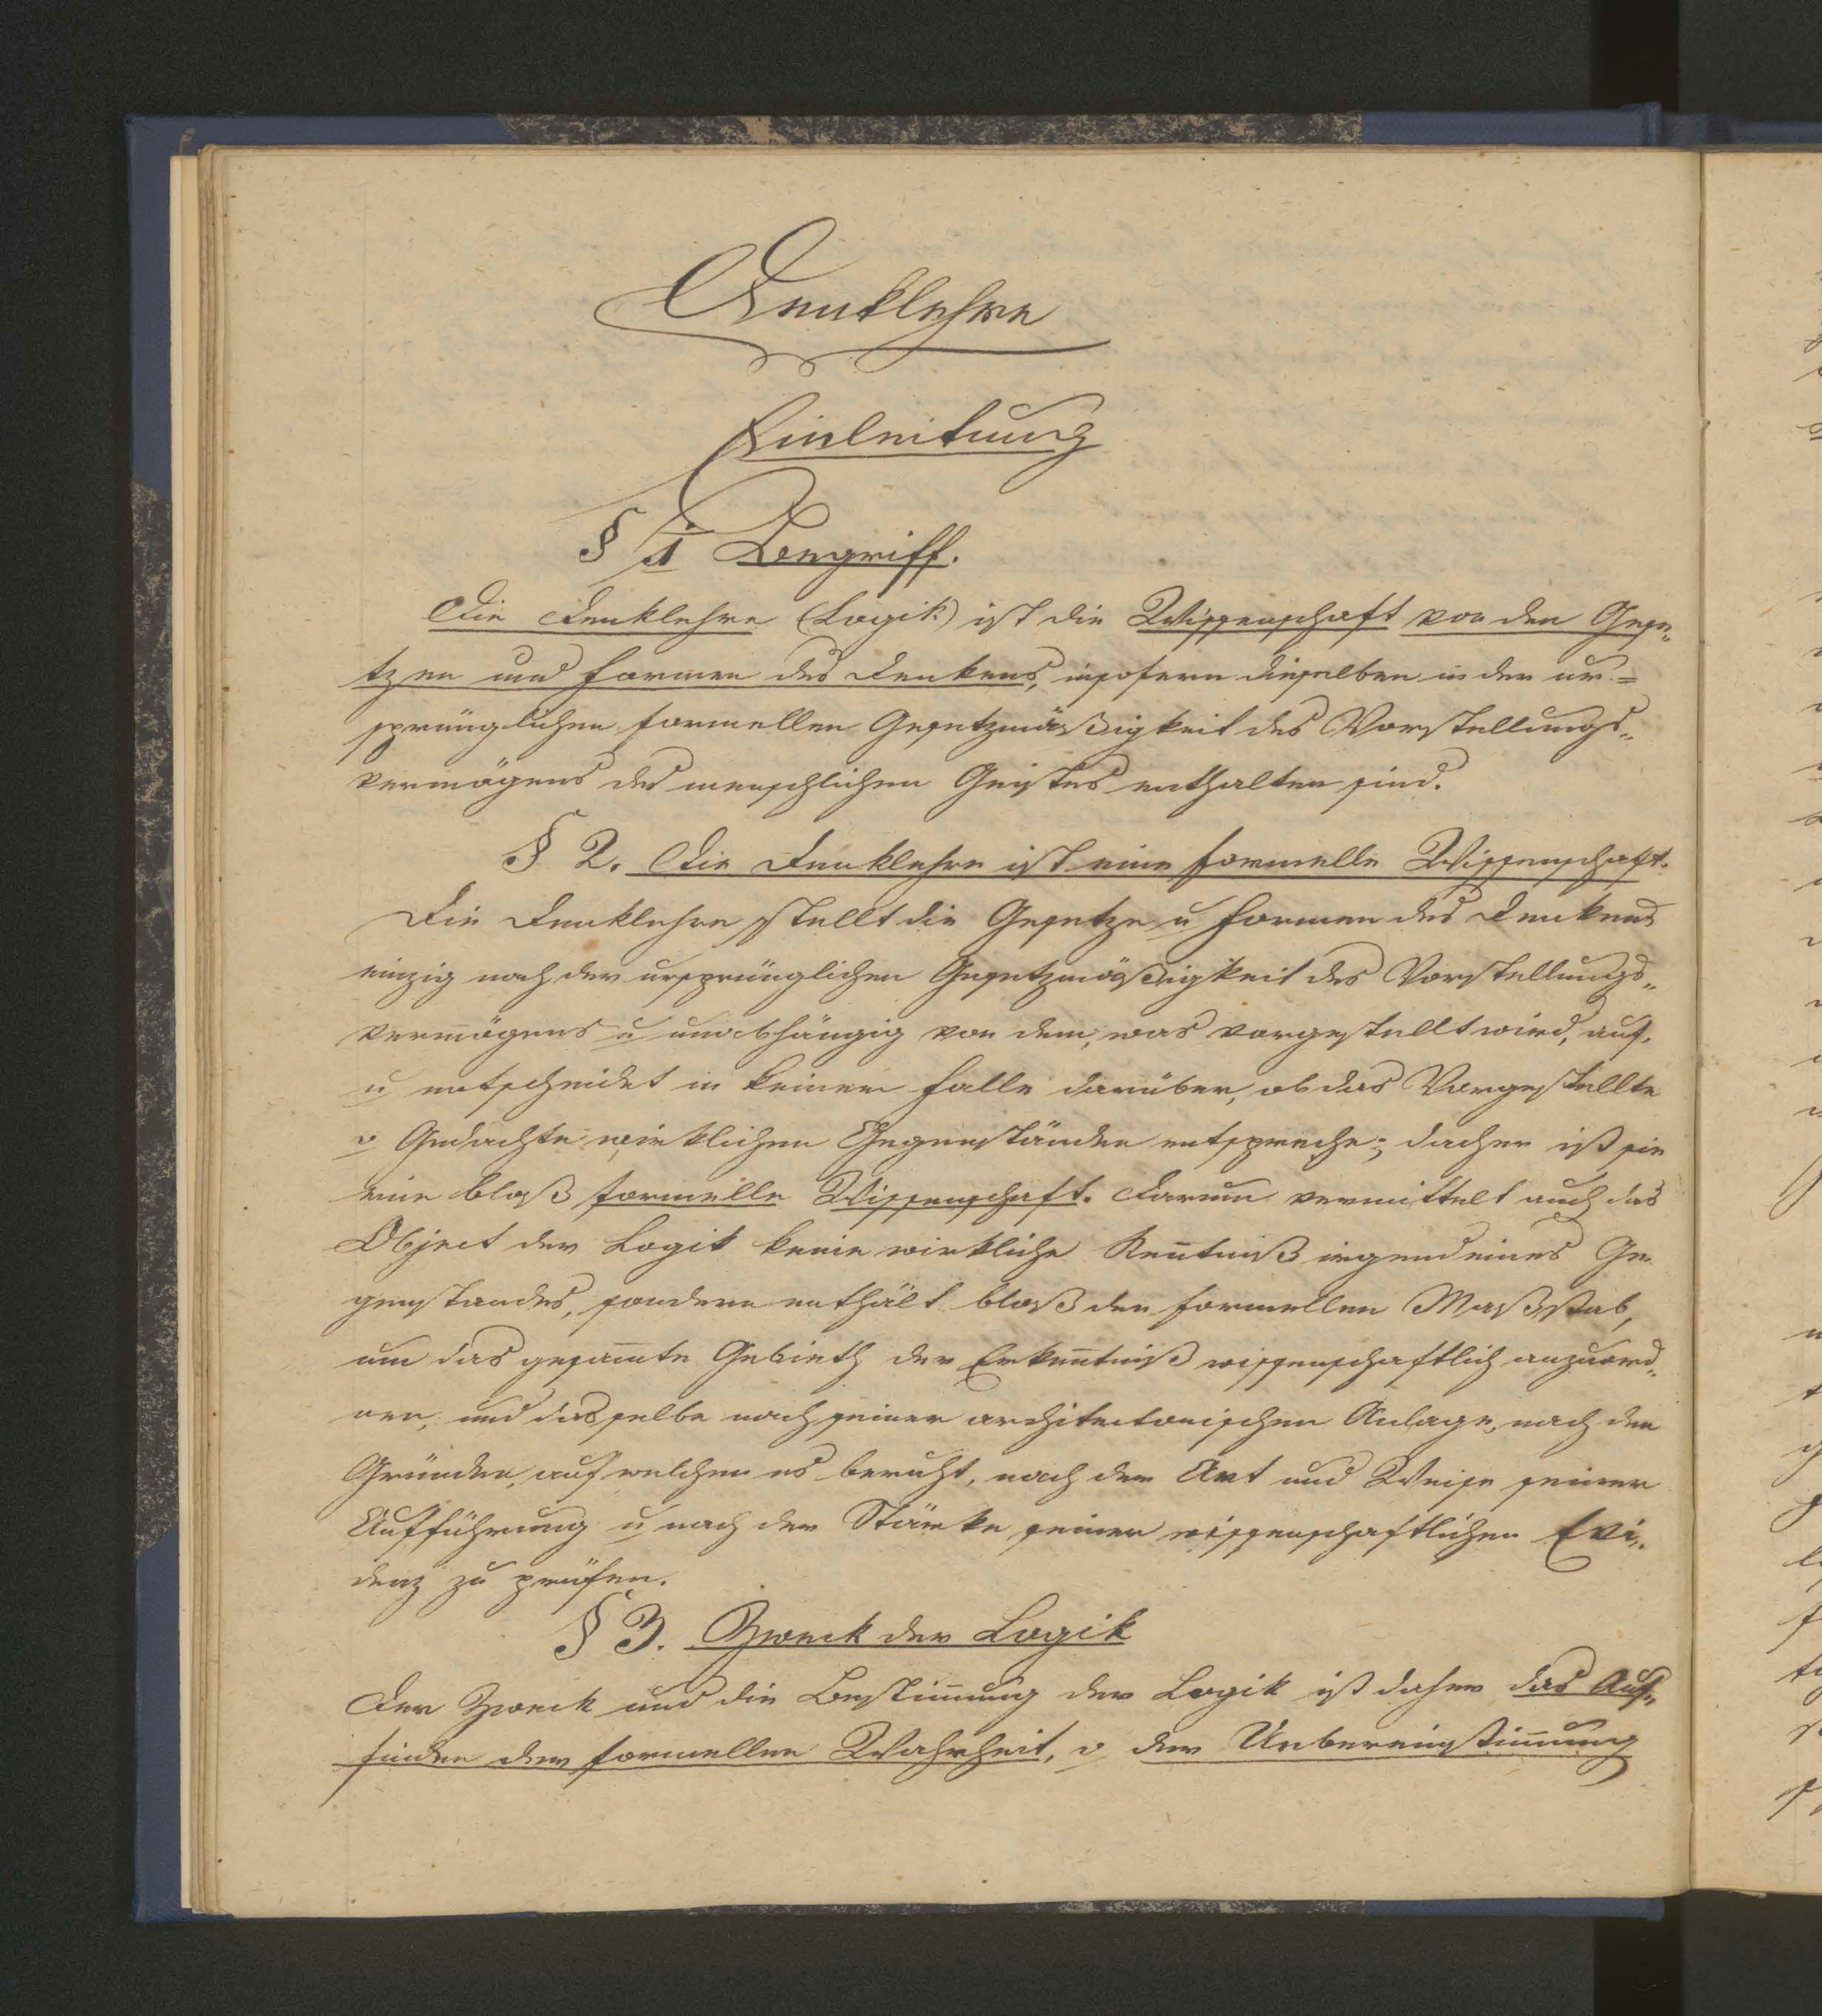 Denklehre
Einleitung
§ 1 Begriff.
Die Denklehre (Logik) ist die Wissenschaft von den Gese„
tzen und Formen des Denkens, insofern dieselben in der ur=
sprünglichen formellen Gesetzmäßigkeit des Vorstellungs„
vermögens des menschlichen Geistes enthalten sind.
§ 2. Die Denklehre ist eine formelle Wissenschaft.
Die Denklehre stellt die Gesetze u Formen des Denkens
einzig nach der ursprünglichen Gesetzmäßigkeit des Vorstellungs„
vermögens u unabhängig von dem, was vorgestellt wird, auf,
u entscheidet in keinem Falle darüber, ob das Vorgestellte
o Gedachte wirklichen Gegenständen entspreche; daher ist sie
eine bloß formelle Wissenschaft. Darum vermittelt auch das
Object der Logik keine wirkliche Keñtniß irgend eines Ge
genstandes, sondern enthält bloß den formellen Maßstab,
um das gesam̄te Gebieth der Erkeñtniß wissenschaftlich anzuord„
nen, und dasselbe nach seiner architectonischen Anlage, nach den
Gründen, auf welchen es beruht, nach der Art und Weise seiner
Aufführung u nach der Stärke seiner wissenschaftlichen Evi„
denz zu prüfen.
§ 3. Zweck der Logik
Der Zweck und die Bestim̄ung der Logik ist daher das Auf„
finden der formellen Wahrheit, o der Uebereinstim̄ung